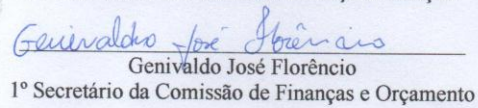 Genivaldo José Florêncio
Genivaldo José Florêncio
1º Secretário da Comissão de Finanças e Orçamento